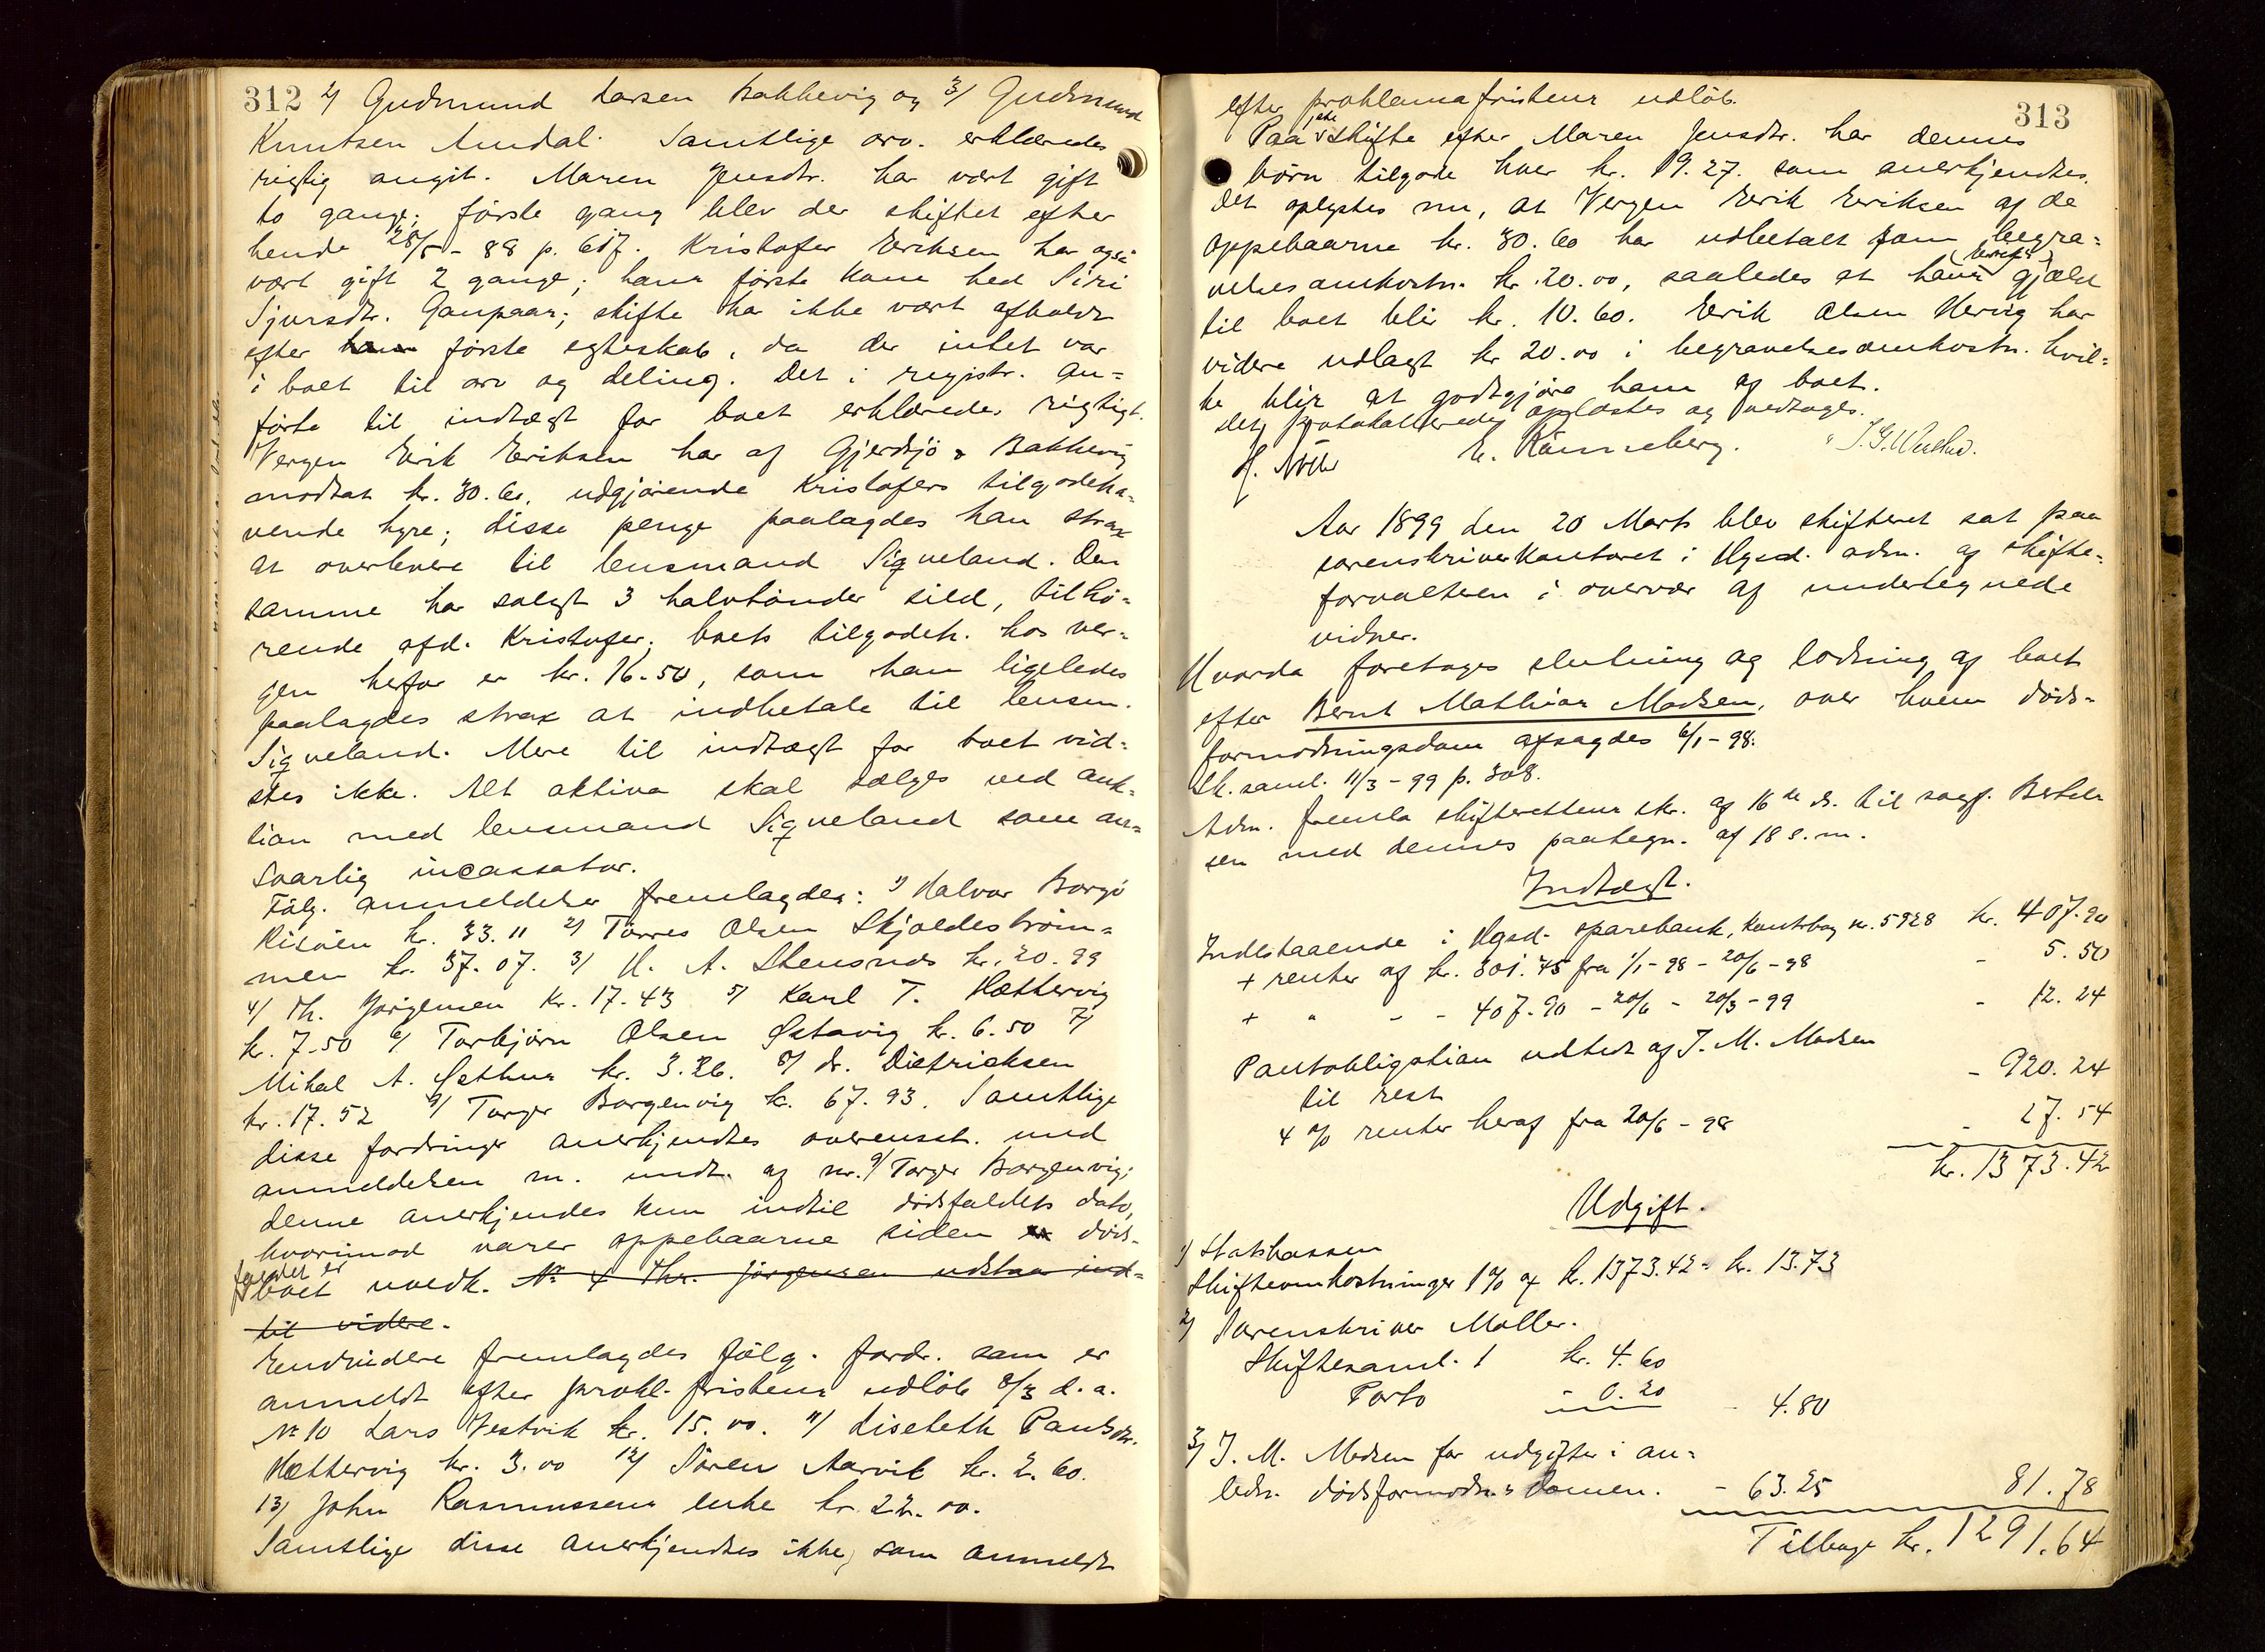 312 2/ Gudmund Larsen Bakkevig og 3/ Gudmund
Knutsen Amdal. Samtlige arv. erklæredes
rigtig angit. Maren Jensdtr. har vært gift
to gange; første gang blev der skiftet efter
hende 28/5 - 88 p. 617. Kristofer Eriksen har også
vært gift 2 gange; hans første kone hed Siri
Sjursdtr. Gaupaas; skifte har ikke vært afholdt
efter hans første egteskab, da der intet var
i boet til arv og deling. Det i registr. an=
førte til indtægt for boet erklæredes rigtigt.
Vergen Erik Eriksen har af Gjerdsjø & Bakkevig
modtat kr. 30.60, udgjørende Kristofers tilgodeha=
vende hyre; disse penge paalagdes han strax
at overlevere til lensmand Siqveland. Den
samme har solgt 3 halvtønder sild, tilhø=
rende afd. Kristofer; boets tilgodeh. hos ver=
gen herfor er kr. 16.50, som han ligeledes
paalagdes strax at indbetale til lensm.
Siqveland. Mere til indtægt for boet vid=
stes ikke. Alt aktiva skal sælges ved auk=
tion med lensmand Siqveland som an=
svarlig incassator.
Følg. anmeldelser fremlagdes: 1) Halvor Borgø
Risøen kr. 33.11 2) Tørres Olsen Skjoldestrøm=
men kr. 37.07. 3/ H. A. Stensnds kr. 20.99
4/ Th. Jørgensen Kr. 17.43 5/ Karl T. Hættervig
kr. 7.50 6/ Torbjørn Olsen Østavig kr. 6.50 7/
Mikal A. Østhus kr. 3.26. 8/ dr. Dietrichsen
kr. 17.52 9/ Torger Borgenvig kr. 67.93. Samtlige
disse fordringer anerkjendtes overensst. med
anmeldelsen m. undt. af nr. 9/ Torger Borgenvig;
denne anerkjendes kun indtil dødsfaldets dato,
hvorimod varer oppebaarne siden døds-
faldet er
boet uvedk. Nr 4 Thr. Jørgensen udstaar ind=
til videre.
Endvidere fremlagdes følg. fordr. som er
anmeldt efter prokl. fristens udløb 8/3 d.a.
Nr 10 Lars Vestvik kr. 15.00. 11/ Lisebeth Paulsdtr.
Hættervig kr. 3.00 12/ Søren Aarvik kr. 2.60.
13/ John Rasmussens enke kr. 22.00.
Samtlige disse anerkjendtes ikke, som anmeldt
313
efter proklamafristens udløb.
Paa skifte efter Maren Jensdtr. har dennes
børn tilgode hver kr. 19.27. som anerkjendtes.
Det oplystes nu, at Vergen Erik Eriksen af de
oppebaarne kr. 30.60 har udbetalt som begra=
velsesomkostn. kr. 20.00, saaledes at hans gjæld
til boet blir kr. 10.60. Erik Olsen Hervig har
videre udlagt kr 20.00 i begravelsesomkostn. hvil=
ke blir at godtgjøre ham af boet.
Det protokollerede oplæstes og vedtages.
E. Rønneberg.
Aar 1899 den 20 Marts blev skifteret sat paa
sorenskriverkontoret i Hgsd. adm. af skifte=
forvalteren i overvær af undertegnede
vidner.
Hvorda foretoges slutning og lodning af boet
efter Bernt Mathias Madsen, over hvem døds=
formodningsdom afsagdes 6/1 - 98.
Sk. saml. 11/3 - 99 p. 308.
Adm. fremla skifterettens skr. af 16de ds. til sagf. Bertel=
sen med dennes paategn. af 18 s.m.
Indtægt.
Indestaaende i Hgsd. sparebank, Kontrabog nr. 5928 kr. 407.90
+ renter af kr. 301.45 fra 1/1 - 98 - 20/6 - 98 - 5.50
+ " - - 407.90 - 20/6 - 20/3 - 99 - 12.24
Pantobligation udstedt af J. M. Madsen
til rest - 920.24
4 % renter heraf fra 20/6 - 98 - 27.54
kr. 1373.42
Udgift.
1/ Statskassen
Skifteomkostninger 1% af kr. 1373.42 = kr. 13.73
2/ Sorenskriver Møller.
Skiftesaml. 1 kr. 4.60
Porto - 0.20 - 4.80
3/ J. M. Madsen for udgifter i an=
ledn. dødsformodn.s domen. - 63.25 81.78
Tilbage kr. 1291.64